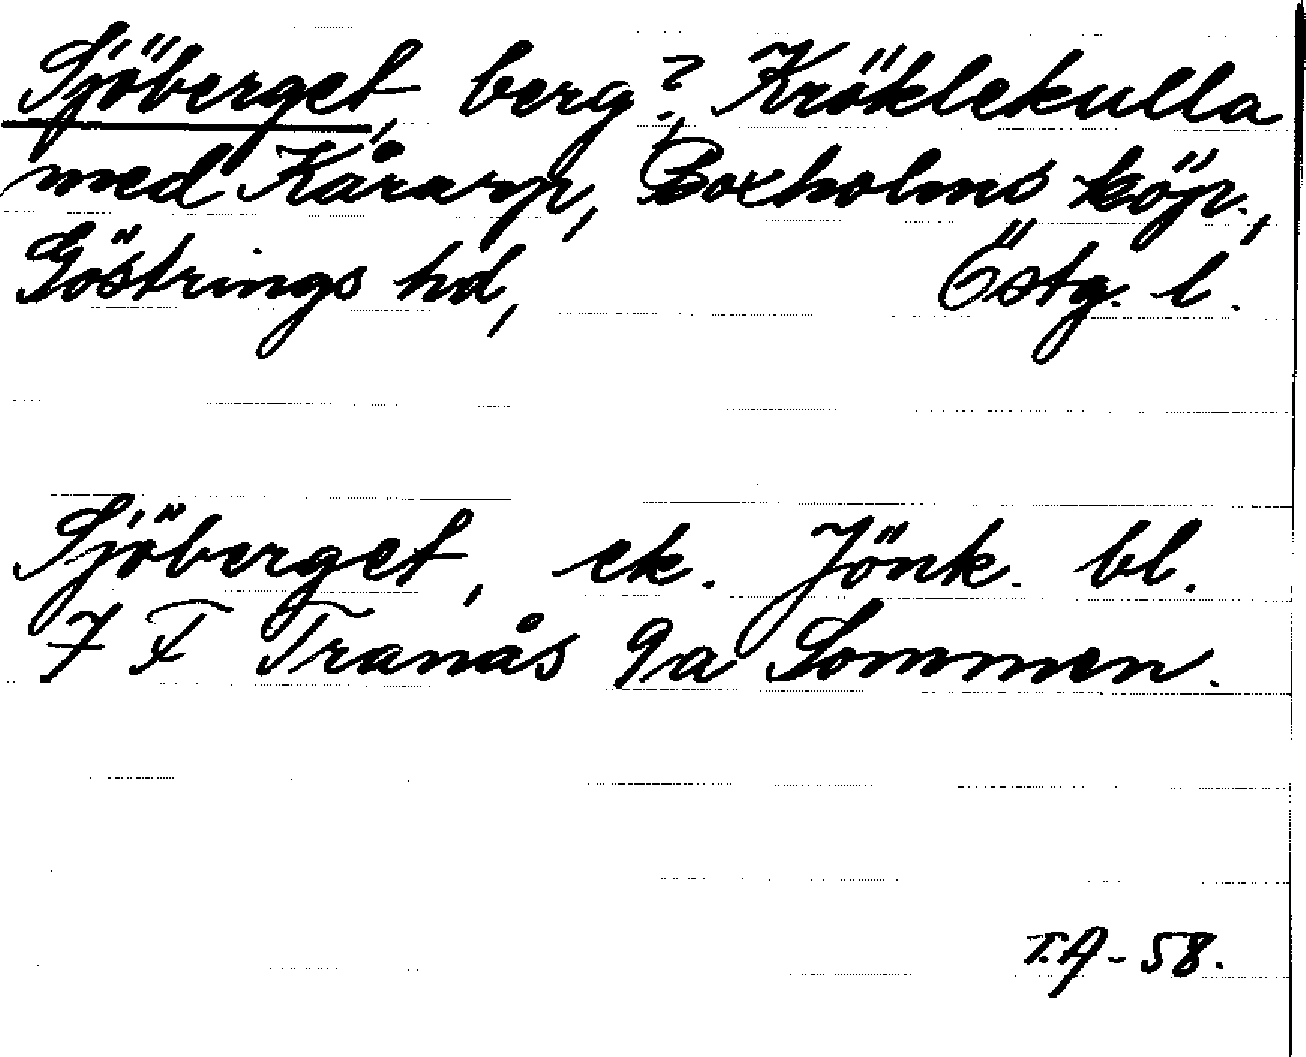 Sjöberget, berg?, Kröklekulla
med Kårarp, Boxholms köp.,
Göstrings hd, Östg. l.
Sjöberget, ek. Jönk. bl.
7 F Tranås 9a Sommen.
T.A-58.